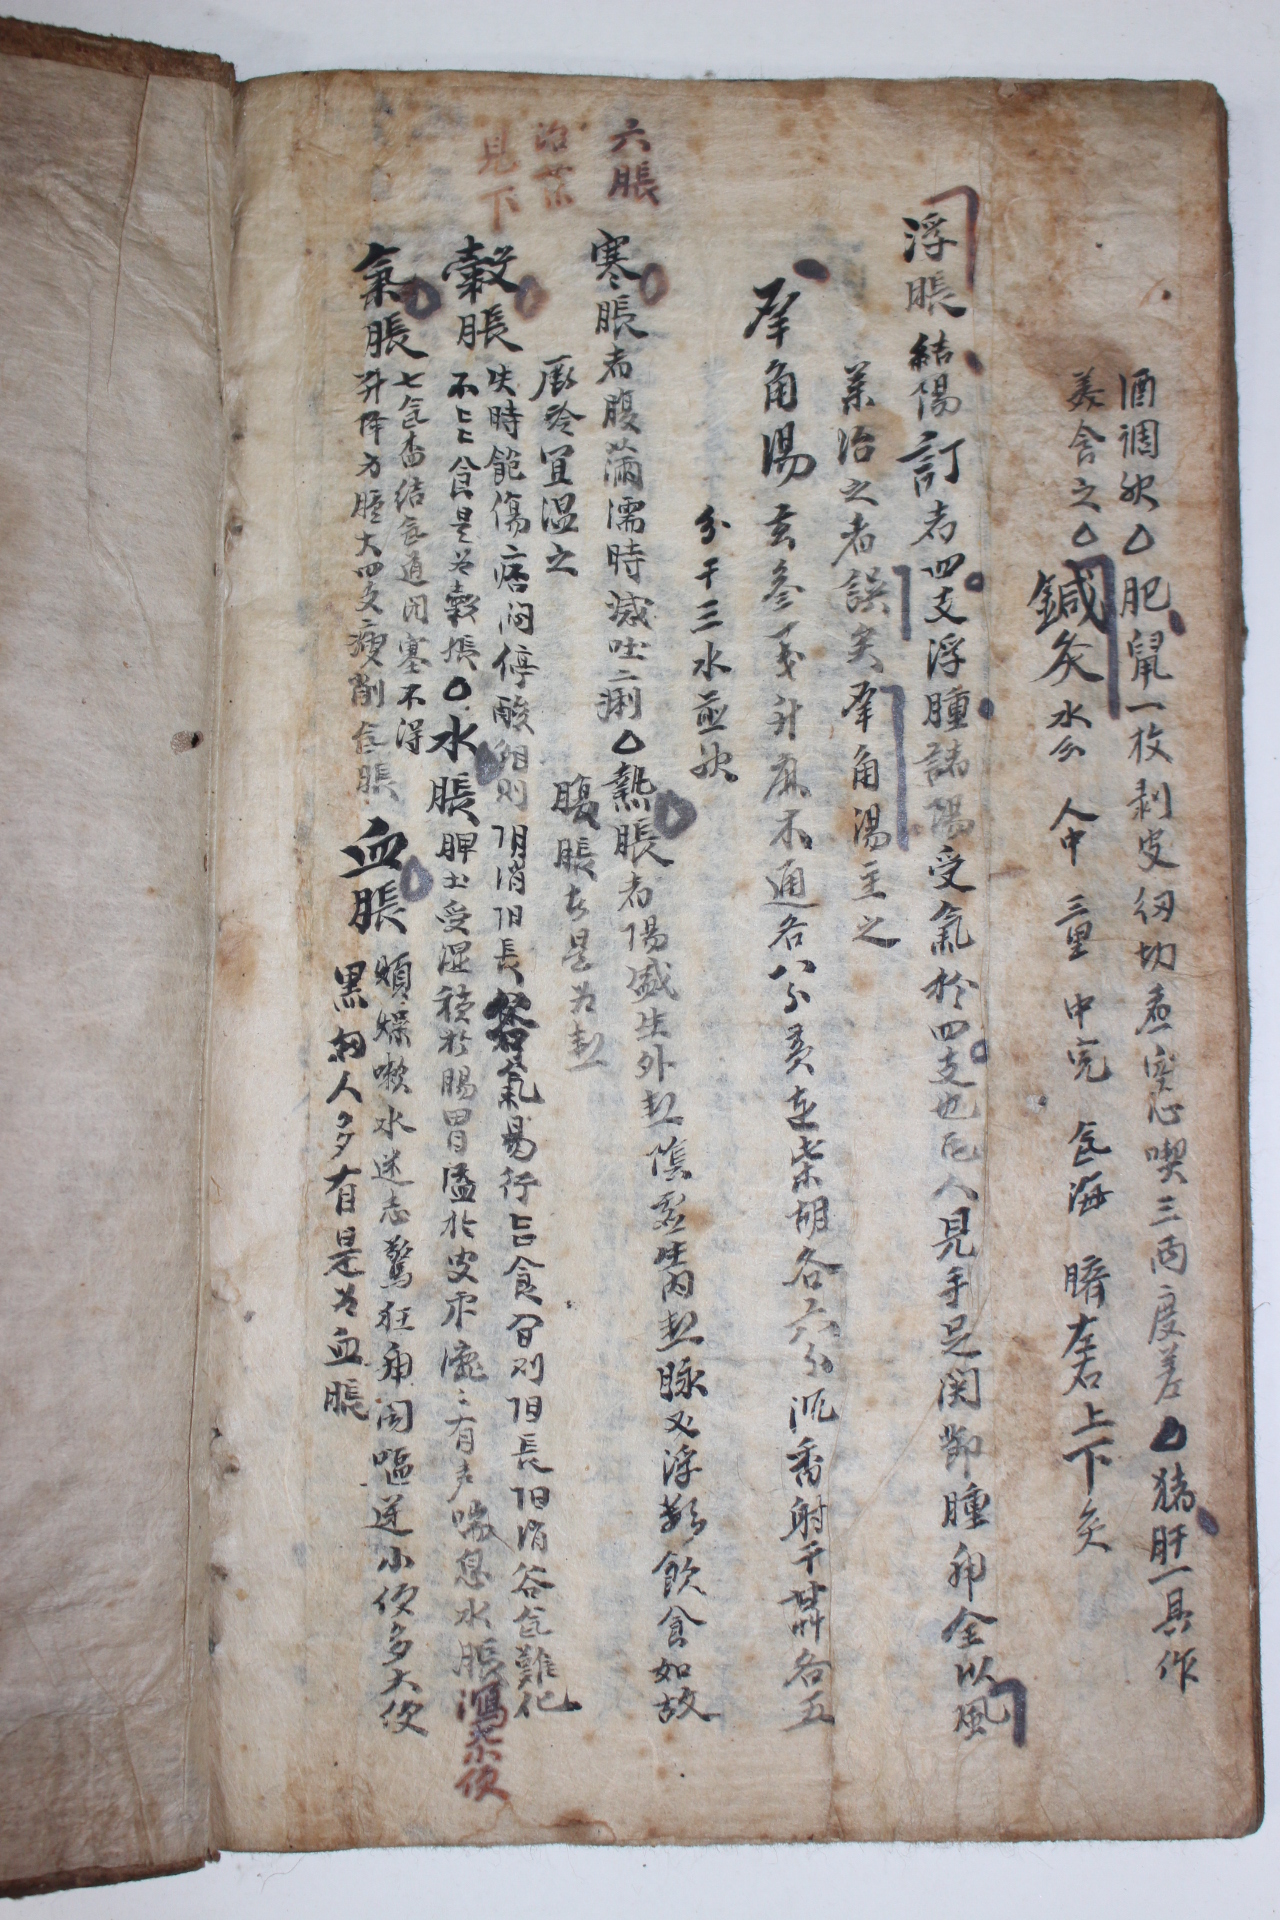 酒調服○肥鼠一枚剥皮細切煮空心喫三両度差○猪肝一具作
羹食之○鍼灸水分 人中 三里 中完 気海 臍左右上下灸
浮脹結陽訂者四支浮腫諸陽受氣於四支也凡人見手足関節腫痛全以風
藥治之者誤矣犀角湯主之
犀角湯玄參一戔升麻木通各八分赤芍柴胡各六分沉香射干甘草各五
分干三水並服
六脹
治藥
見下
寒脹者腹滿濡時減吐二痢
厥冷宜温之
○熱脹者陽盛生外热陰虚生內热脉又浮數飲食如故
腹脹者是为热
穀脹失時飽傷痞悶停酸朝則阴消阳長穀氣易行能食 則阳長阳消谷気難化
不能食是为穀脹○水脹脾土受湿積於腸胃溢於皮 漉ミ有声喘息水脹
渴 便
氣脹七気杳結気道闭塞不得
升降方腫大四支瘦削気脹
血脹煩燥嗽水迷忘驚狂痛悶嘔逆小便多大便
黑婦人多有是为血脹